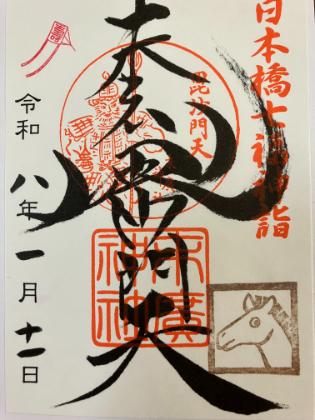 日本橋七福神詣
毘沙門天
門天
末廣
神社
壽
令和八年一月十一日